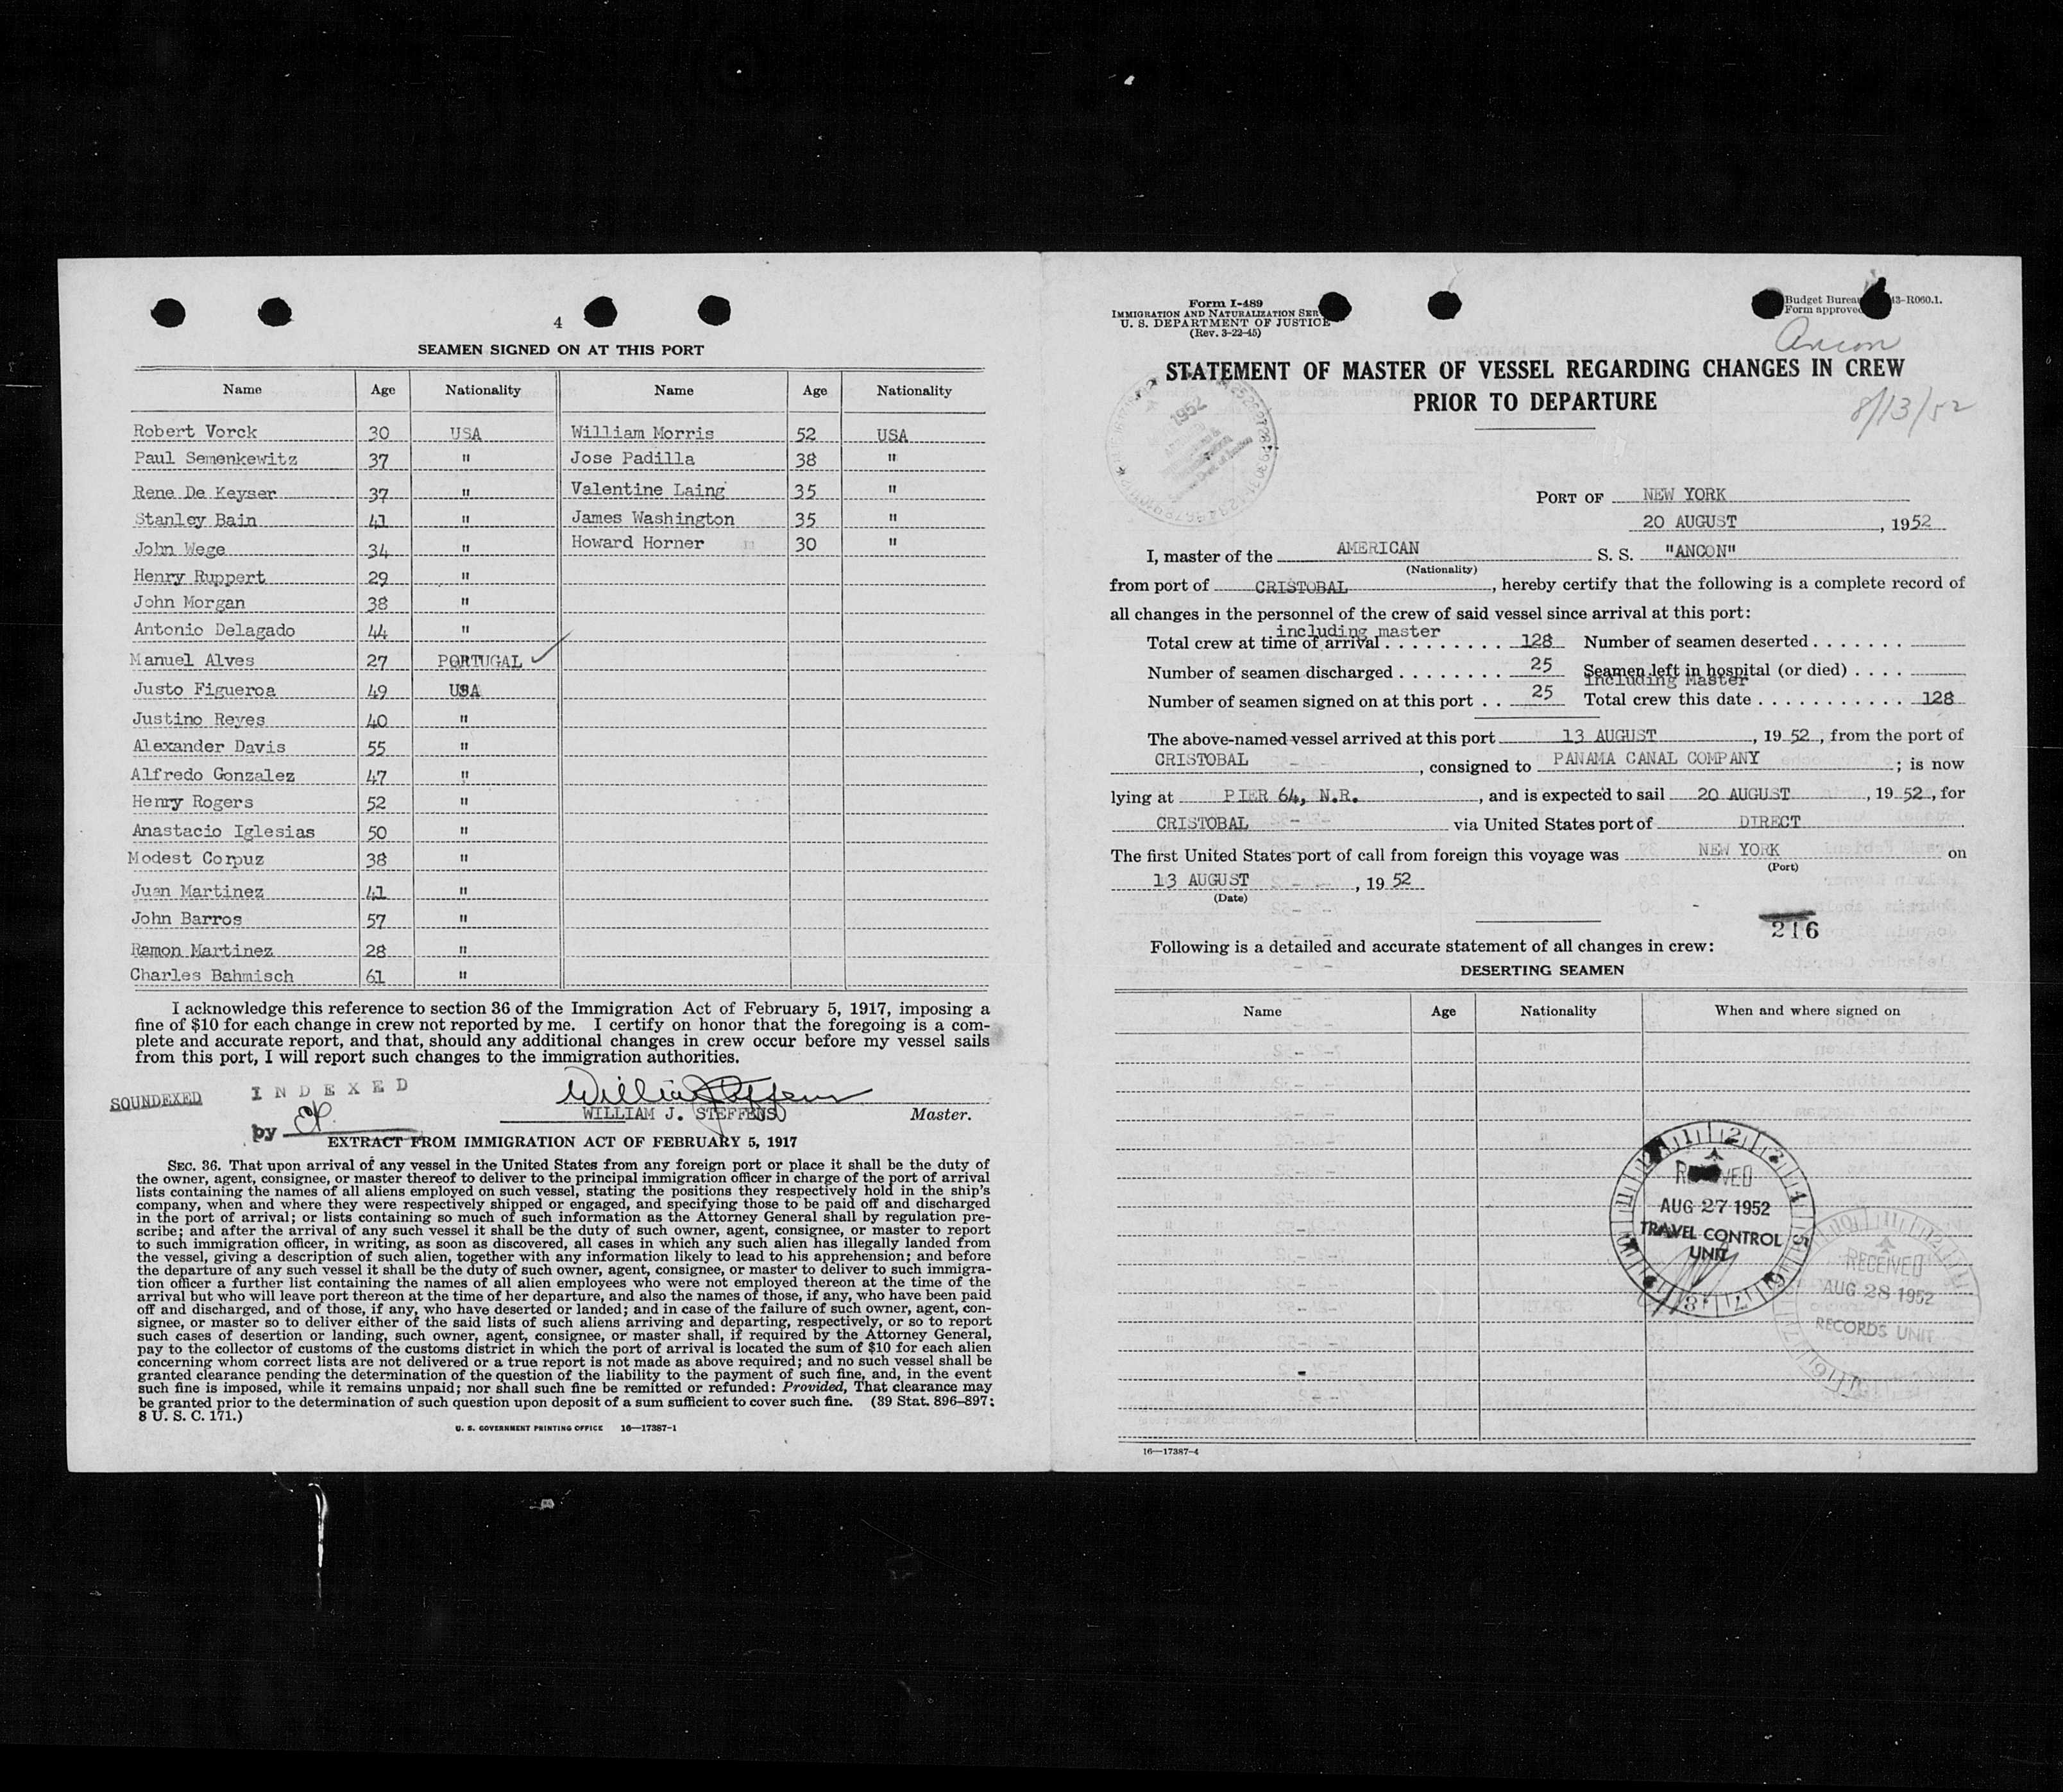 4
SEAMEN SIGNED ON AT THIS PORT
Name Age Nationality Name Age Nationality
Robert Vorck 30 USA William Morris 52 USA
Paul Semenkewitz 37 " Jose Padilla 38 "
Rene De Keyser 37 " Valentine Laing 35 "
Stanley Bain 41 " James Washington 35 "
John Wege 34 " Howard Horner 30 "
Henry Ruppert 29 "
John Morgan 38 "
Antonio Delagado 44 "
Manuel Alves 27 PORTUGAL ✓
Justo Figueroa 49 USA
Justino Reyes 40 "
Alexander Davis 55 "
Alfredo Gonzalez 47 "
Henry Rogers 52 "
Anastacio Iglesias 50 "
Modest Corpuz 38 "
Juan Martinez 41 "
John Barros 57 "
Ramon Martinez 28 "
Charles Bahmisch 61 "
I acknowledge this reference to section 36 of the Immigration Act of February 5, 1917, imposing a
fine of $10 for each change in crew not reported by me. I certify on honor that the foregoing is a com-
plete and accurate report, and that, should any additional changes in crew occur before my vessel sails
from this port, I will report such changes to the immigration authorities.
SOUNDEXED INDEXED
by
William J Steffens
WILLIAM J. STEFFENS Master.
EXTRACT FROM IMMIGRATION ACT OF FEBRUARY 5, 1917
SEC. 36. That upon arrival of any vessel in the United States from any foreign port or place it shall be the duty of
the owner, agent, consignee, or master thereof to deliver to the principal immigration officer in charge of the port of arrival
lists containing the names of all aliens employed on such vessel, stating the positions they respectively hold in the ship's
company, when and where they were respectively shipped or engaged, and specifying those to be paid off and discharged
in the port of arrival; or lists containing so much of such information as the Attorney General shall by regulation pre-
scribe; and after the arrival of any such vessel it shall be the duty of such owner, agent, consignee, or master to report
to such immigration officer, in writing, as soon as discovered, all cases in which any such alien has illegally landed from
the vessel, giving a description of such alien, together with any information likely to lead to his apprehension; and before
the departure of any such vessel it shall be the duty of such owner, agent, consignee, or master to deliver to such immigra-
tion officer a further list containing the names of all alien employees who were not employed thereon at the time of the
arrival but who will leave port thereon at the time of her departure, and also the names of those, if any, who have been paid
off and discharged, and of those, if any, who have deserted or landed; and in case of the failure of such owner, agent, con-
signee, or master so to deliver either of the said lists of such aliens arriving and departing, respectively, or so to report
such cases of desertion or landing, such owner, agent, consignee, or master shall, if required by the Attorney General,
pay to the collector of customs of the customs district in which the port of arrival is located the sum of $10 for each alien
concerning whom correct lists are not delivered or a true report is not made as above required; and no such vessel shall be
granted clearance pending the determination of the question of the liability to the payment of such fine, and, in the event
such fine is imposed, while it remains unpaid; nor shall such fine be remitted or refunded: Provided, That clearance may
be granted prior to the determination of such question upon deposit of a sum sufficient to cover such fine. (39 Stat. 896–897;
8 U. S. C. 171.)
U. S. GOVERNMENT PRINTING OFFICE 16—17387-1
Form I-489
IMMIGRATION AND NATURALIZATION SER
U. S. DEPARTMENT OF JUSTICE
(Rev. 3-22-45)
Budget Bureau 43-R060.1.
Form approved
Ancon
STATEMENT OF MASTER OF VESSEL REGARDING CHANGES IN CREW
PRIOR TO DEPARTURE
8/13/52
1952
PORT OF NEW YORK
20 AUGUST, 1952
I, master of the AMERICAN S. S. "ANCON"
(Nationality)
from port of CRISTOBAL, hereby certify that the following is a complete record of
all changes in the personnel of the crew of said vessel since arrival at this port:
including master
Total crew at time of arrival 128 Number of seamen deserted
Number of seamen discharged 25 Seamen left in hospital (or died)
including Master
Number of seamen signed on at this port 25 Total crew this date 128
The above-named vessel arrived at this port 13 AUGUST, 1952, from the port of
CRISTOBAL, consigned to PANAMA CANAL COMPANY; is now
lying at PIER 64, N.R., and is expected to sail 20 AUGUST, 1952, for
CRISTOBAL via United States port of DIRECT
The first United States port of call from foreign this voyage was NEW YORK on
(Port)
13 AUGUST, 1952
(Date)
216
Following is a detailed and accurate statement of all changes in crew:
DESERTING SEAMEN
Name Age Nationality When and where signed on
RECEIVED
AUG 27 1952
TRAVEL CONTROL
UNIT
RECEIVED
AUG 28 1952
RECORDS UNIT
16—17387-4